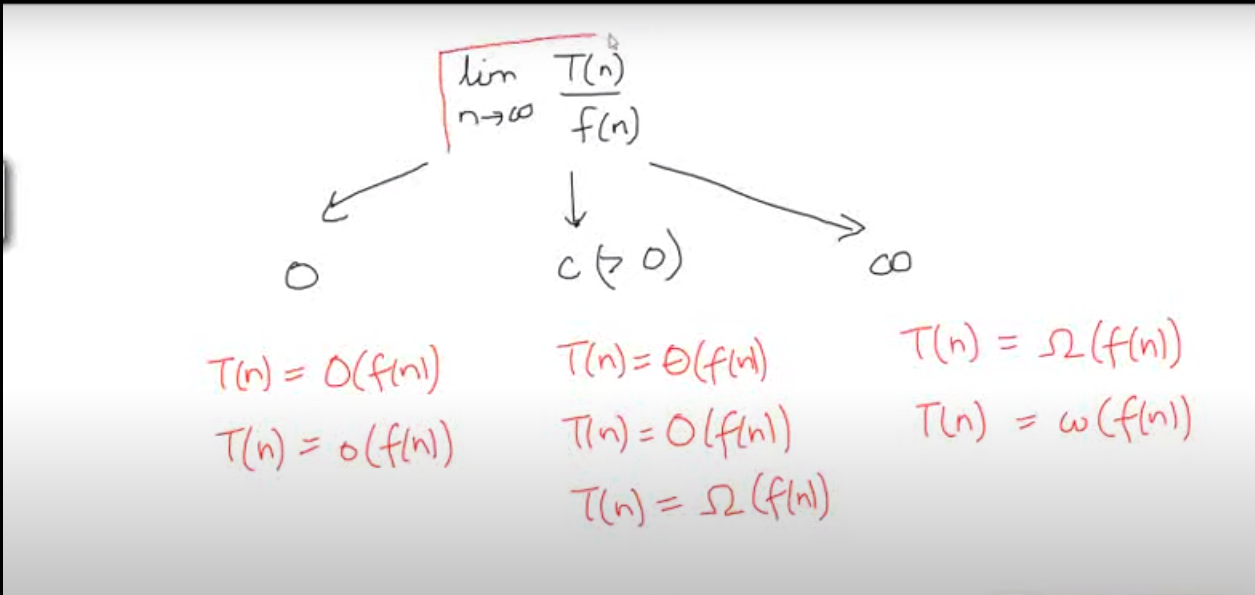 lim T(n)
n→∞ f(n)
0
c (> 0)
∞
T(n) = O(f(n))
T(n) = o(f(n))
T(n) = Θ(f(n))
T(n) = O(f(n))
T(n) = Ω(f(n))
T(n) = Ω(f(n))
T(n) = ω(f(n))